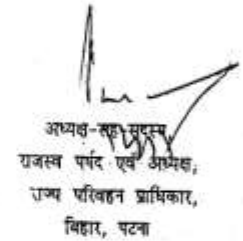 अध्यक्ष-सह-सदस्य,
राजस्व पर्षद एवं अध्यक्ष,
राज्य परिवहन प्राधिकार,
बिहार, पटना